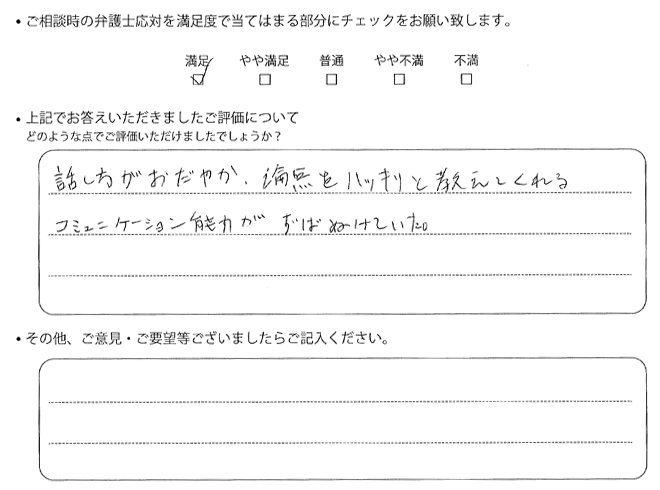 • ご相談時の弁護士応対を満足度で当てはまる部分にチェックをお願い致します。
満足 やや満足 普通 やや不満 不満
• 上記でお答えいただきましたご評価について
どのような点でご評価いただけましたでしょうか?
話し方がおだやか、論点をハッキリと教えてくれる
コミュニケーション能力がずばぬけていた。
• その他、ご意見・ご要望等ございましたらご記入ください。